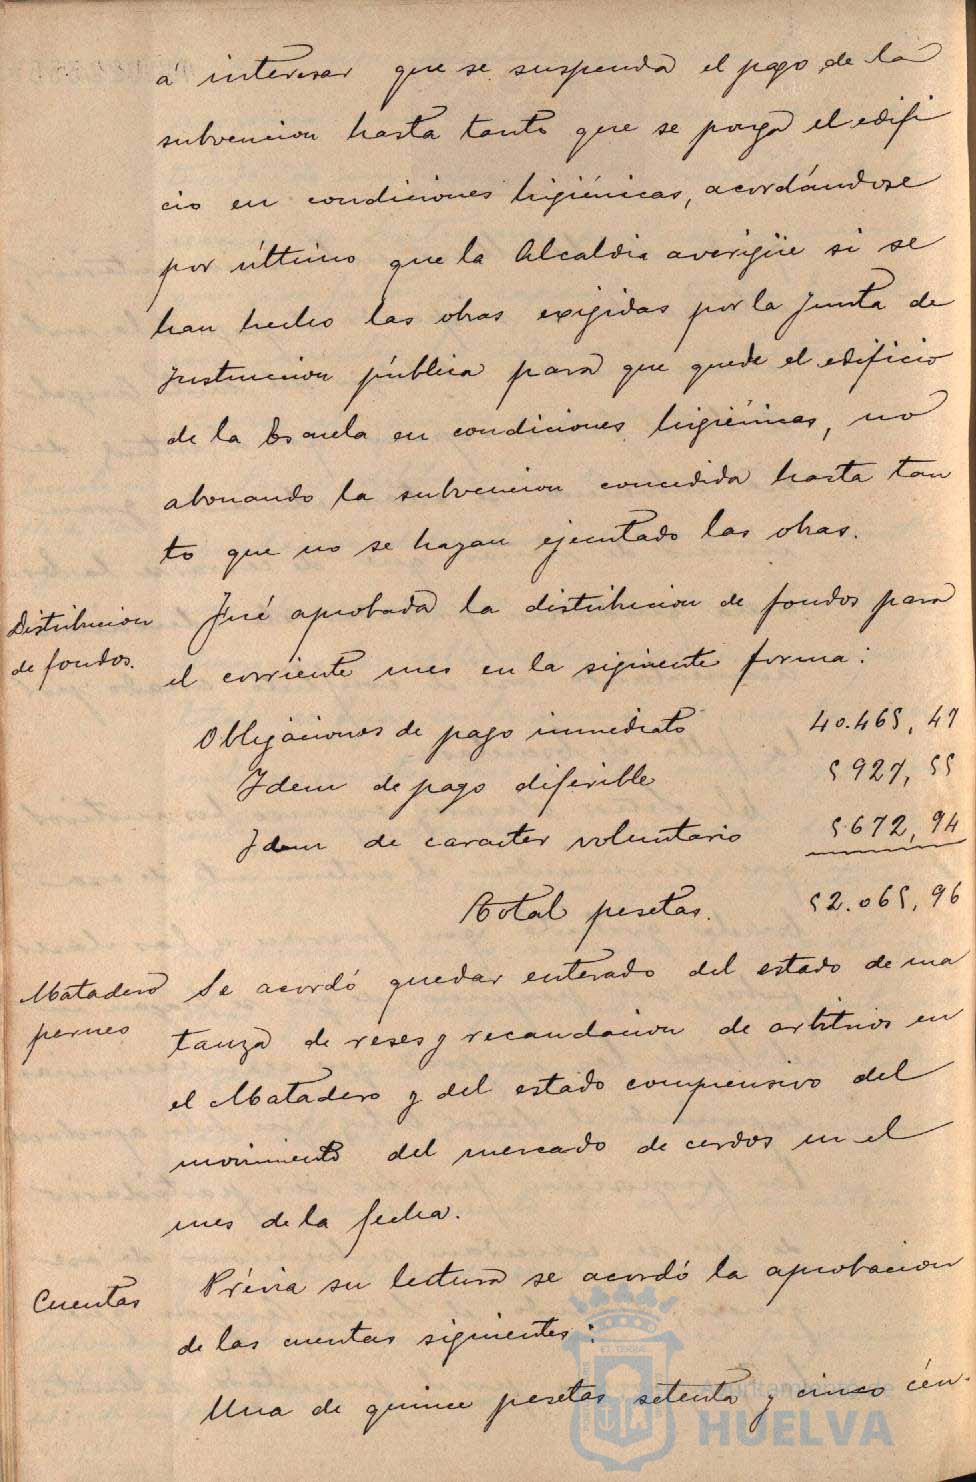 á interesar que se suspenda el pago de la
subvencion hasta tanto que se ponga el edifi
cio en condiciones higiénicas, acordándose
por último que la Alcaldia averigüe si se
han hecho las obras exigidas por la Junta de
Instruccion pública para que quede el edificio
de la Escuela en condiciones higiénicas, no
abonando la subvencion concedida hasta tan
to que no se hayan ejecutado las obras.
Distribucion
de fondos.
Fué aprobada la distribucion de fondos para
el corriente mes en la siguiente forma:
Obligaciones de pago inmediato 40.465,47
Idem de pago diferible 5927,55
Idem de caracter voluntario 5.672,94
Total pesetas. 52.065,96
Matadero
perneo
Se acordó quedar enterado del estado de ma
tanza de reses y recaudacion de arbitrios en
el Matadero y del estado comprensivo del
movimiento del mercado de cerdos en el
mes de la fecha.
Cuentas
Prévia su lectura se acordó la aprobacion
de las cuentas siguientes:
Una de quince pesetas setenta y cinco cén-
Ayuntamiento de
HUELVA